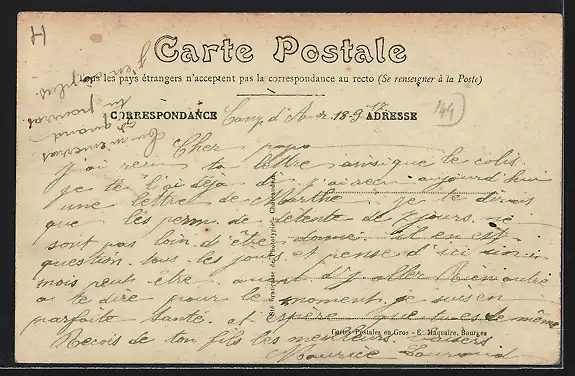 H
Carte Postale
Tous les pays étrangers n'acceptent pas la correspondance au recto (Se renseigner à la Poste)
CORRESPONDANCE
Camp d'Avor 18-9-12
ADRESSE
144
j'en plus
tu pourras
quand
Cher papa
J'ai reçu ta lettre ainsi que le colis
je te l'ai déjà dit j'ai reçu aujourd'hui
une lettre de Marthe je te dirais
que les perm. de détente de 7 jours ne
sont pas loin d'être donné il en est
question tous les jours et pense d'ici un
mois peut être avant d'y aller Rien autre
a te dire pour le moment je suis en
parfaite santé et espère que tu es de même
Reçois de ton fils les meilleurs baisers
Maurice
Sté Française de Phototypie - Châteaudun
Cartes Postales en Gros - E. Maquaire, Bourges